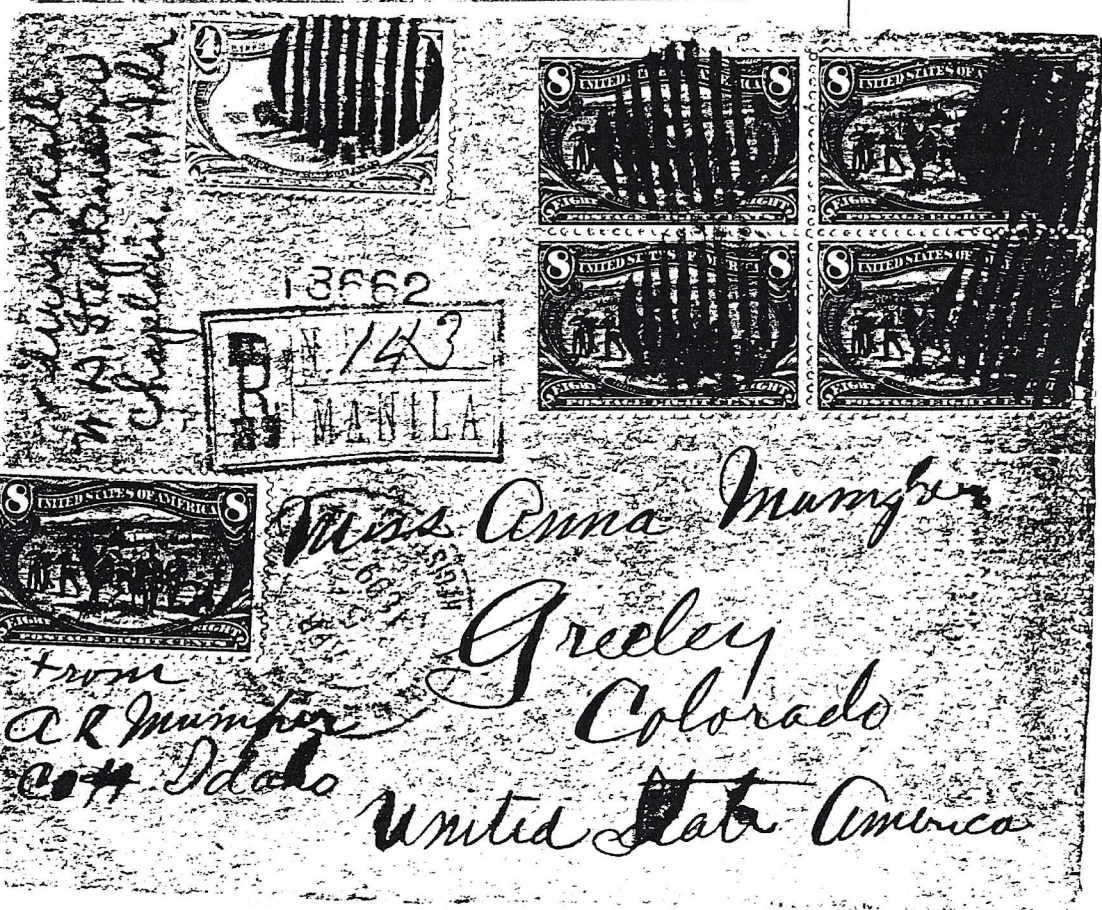 4
8 UNITED STATES OF AMERICA 8
EIGHT EIGHT
POSTAGE EIGHT CENTS
8 UNITED STATES OF A
EIGHT
POSTAGE EIGHT CENTS
8 UNITED STATES OF AMERICA 8
EIGHT EIGHT
POSTAGE EIGHT CENTS
8 UNITED STATES OF
EIGHT
POSTAGE EIGHT CENTS
Chaplin
13662
R N 143
MANILA
8 UNITED STATES OF AMERICA 8
EIGHT EIGHT
POSTAGE EIGHT CENTS
Miss Anna Mumper
Greeley
Colorado
United State America
From
A R Mumper
Co H Idaho